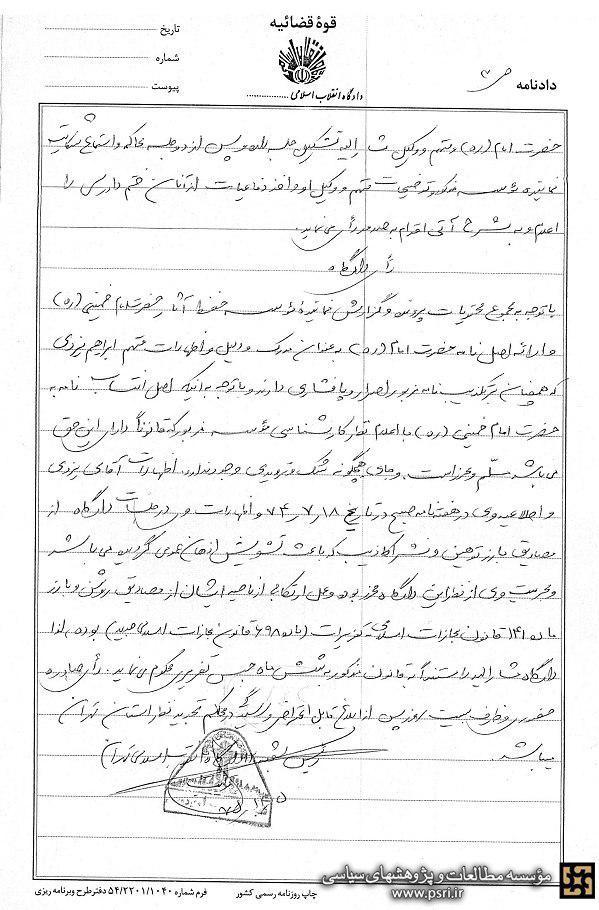 قوهٔ قضائیه
تاریخ
شماره
پیوست
دادگاه انقلاب اسلامی
دادنامه
حضرت امام (ره) و متهم و وکیل مشارالیه تشکیل جلسه داده و پس از دو جلسه محاکمه و استماع شکایت
نماینده مؤسسه مذکور و توضیحات متهم و وکیل او و اخذ دفاعیات از آنان ختم دادرسی را
اعلام و به شرح آتی اقدام به صدور رأی می نماید.
رأی دادگاه
با توجه به مجموع محتویات پرونده و گزارش نماینده مؤسسه حفظ آثار حضرت امام خمینی (ره)
و ارائه اصل نامه حضرت امام (ره) به عنوان مدرک و دلیل و اظهارات متهم ابراهیم یزدی
که همچنان بر تکذیب نامه مزبور اصرار و پافشاری دارند و با توجه به اینکه اصل انتساب نامه به
حضرت امام خمینی (ره) با اعلام نظر کارشناسی مؤسسه مزبور که قانوناً دارای این حق
می باشد مسلّم و محرز است و جای هیچگونه شک و تردیدی وجود ندارد، اظهارات آقای یزدی
و اطلاعیه وی در هفته نامه صبح در تاریخ ۷۴٫۷٫۱۸ و اظهارات وی در جلسات دادگاه از
مصادیق بارز توهین و نشر اکاذیب که باعث تشویش اذهان عمومی گردیده می باشد
و مجرمیت وی از نظر این دادگاه محرز بوده و عمل ارتکابی از ناحیه ایشان از مصادیق روشن و بارز
ماده ۱۴۱ قانون مجازات اسلامی تعزیرات (ماده ۶۹۸ قانون مجازات اسلامی جدید) بوده، لذا
دادگاه مشارالیه را مستنداً به قانون مذکور به شش ماه حبس تعزیری محکوم می نماید. رأی صادره
حضوری و ظرف بیست روز پس از ابلاغ قابل اعتراض و رسیدگی در محاکم تجدید نظر استان تهران
میباشد.
رئیس شعبه دادگاه انقلاب اسلامی تهران
فرم شماره ۵۴/۲۲۰۱/۱۰۴۰ دفتر طرح و برنامه ریزی
چاپ روزنامه رسمی کشور
مؤسسه مطالعات و پژوهشهای سیاسی
www.psri.ir